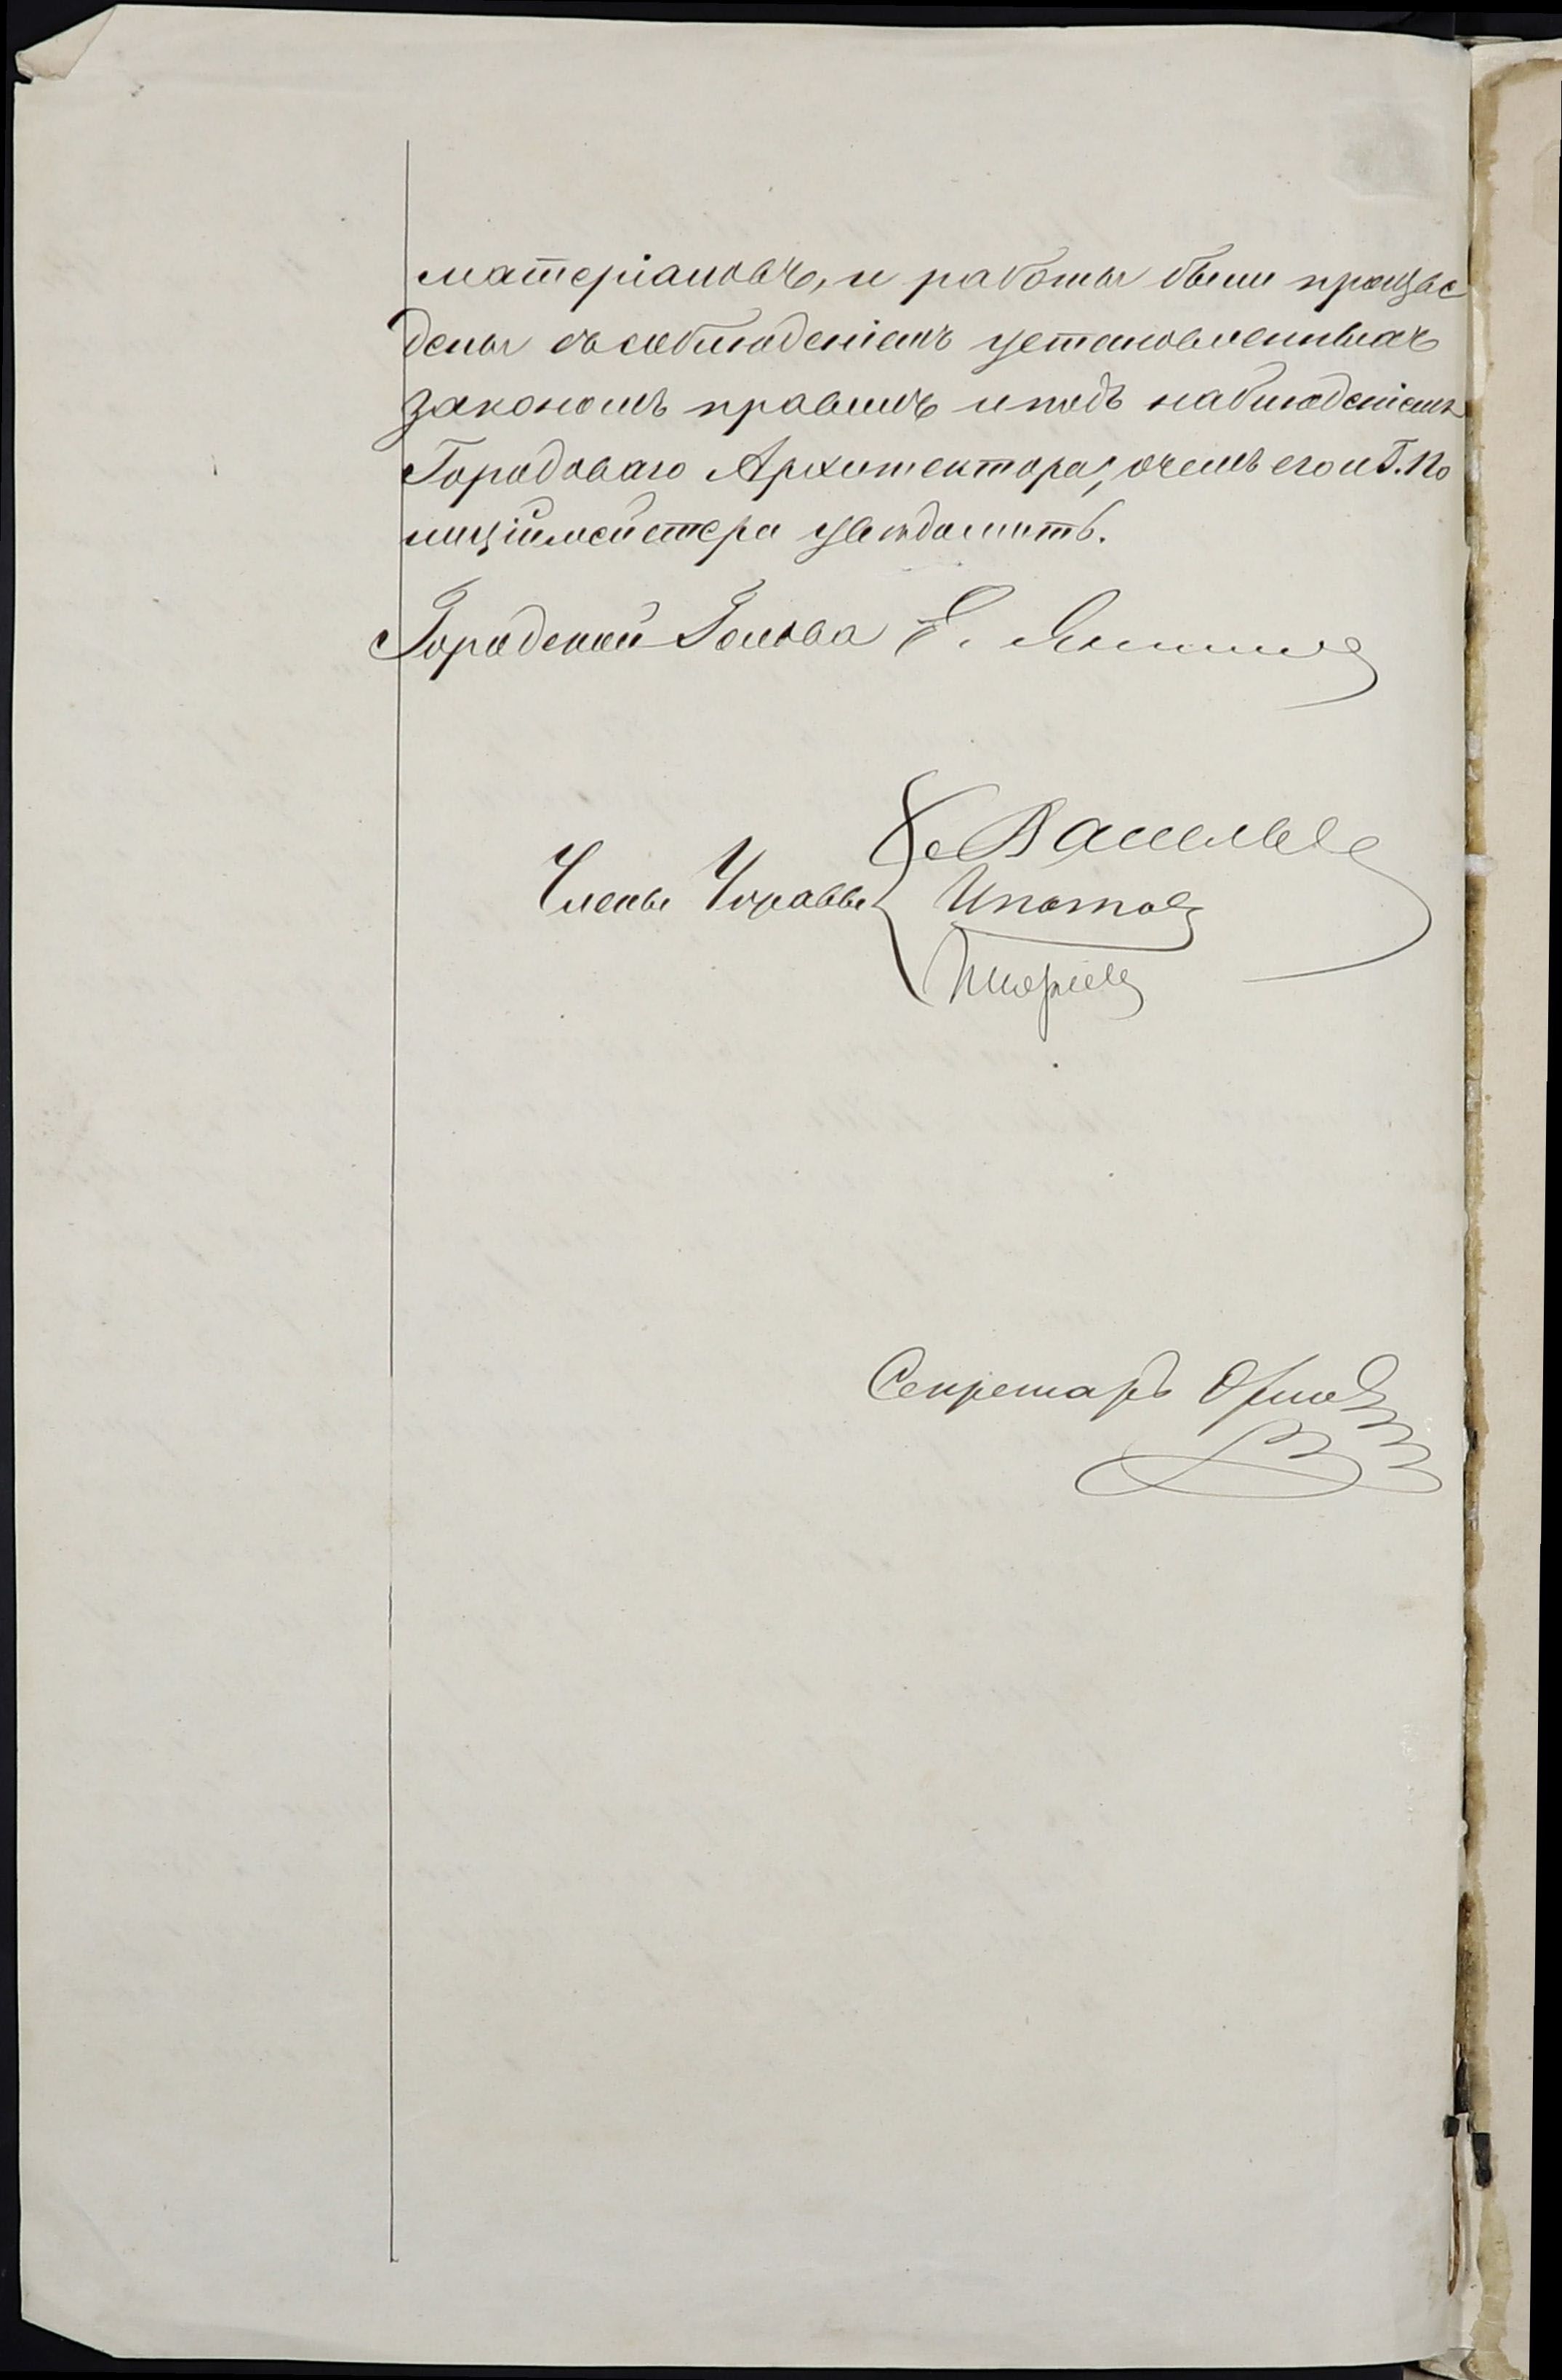 матеріаловъ, и работы были произве
дены съ соблюденіемъ установленныхъ
закономъ правилъ и подъ наблюденіемъ
Городоваго Архитектора, о чемъ его и Г. По
лиціймейстера увѣдомить.
Городской Голова Е.
Члены Управы
Васильев
Ипатов
Секретарь Орлов